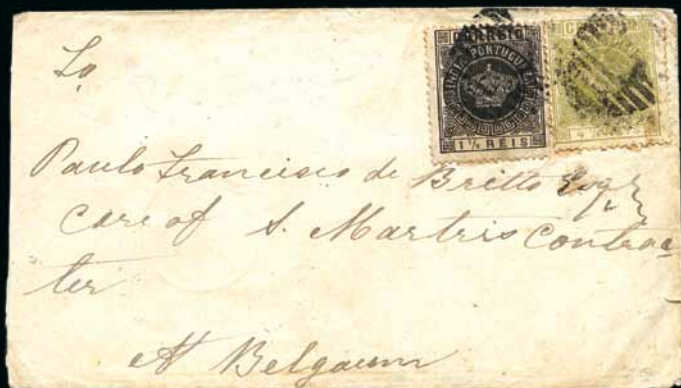 To
CORREIO
INDIA PORTUGUEZA
1 1/2 RÉIS
4 1/2
Paulo Francisco de Britto Esqr
Care of S. Martris Contrac
ter
At Belgaum